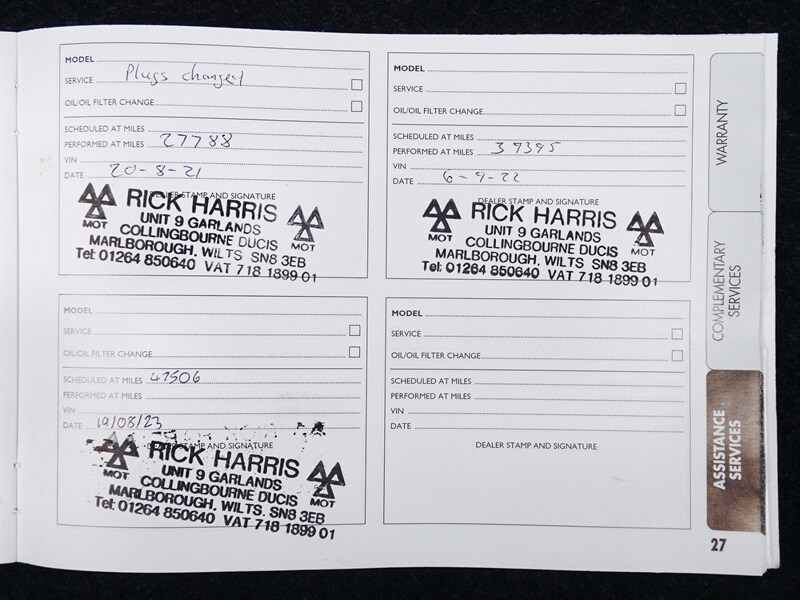 MODEL
SERVICE Plugs changed
OIL/OIL FILTER CHANGE
SCHEDULED AT MILES
PERFORMED AT MILES 27788
VIN
DATE 20-8-21
DEALER STAMP AND SIGNATURE
MOT RICK HARRIS MOT
UNIT 9 GARLANDS
COLLINGBOURNE DUCIS
MARLBOROUGH, WILTS SN8 3EB
Tel: 01264 850640 VAT 718 1899 01
MODEL
SERVICE
OIL/OIL FILTER CHANGE
SCHEDULED AT MILES
PERFORMED AT MILES 37395
VIN
DATE 6-9-22
DEALER STAMP AND SIGNATURE
MOT RICK HARRIS MOT
UNIT 9 GARLANDS
COLLINGBOURNE DUCIS
MARLBOROUGH, WILTS SN8 3EB
Tel: 01264 850640 VAT 718 1899 01
MODEL
SERVICE
OIL/OIL FILTER CHANGE
SCHEDULED AT MILES 47506
PERFORMED AT MILES
VIN
DATE 19/08/23
DEALER STAMP AND SIGNATURE
MOT RICK HARRIS MOT
UNIT 9 GARLANDS
COLLINGBOURNE DUCIS
MARLBOROUGH, WILTS. SN8 3EB
Tel: 01264 850640 VAT 718 1899 01
MODEL
SERVICE
OIL/OIL FILTER CHANGE
SCHEDULED AT MILES
PERFORMED AT MILES
VIN
DATE
DEALER STAMP AND SIGNATURE
WARRANTY
COMPLEMENTARY
SERVICES
ASSISTANCE
SERVICES
27